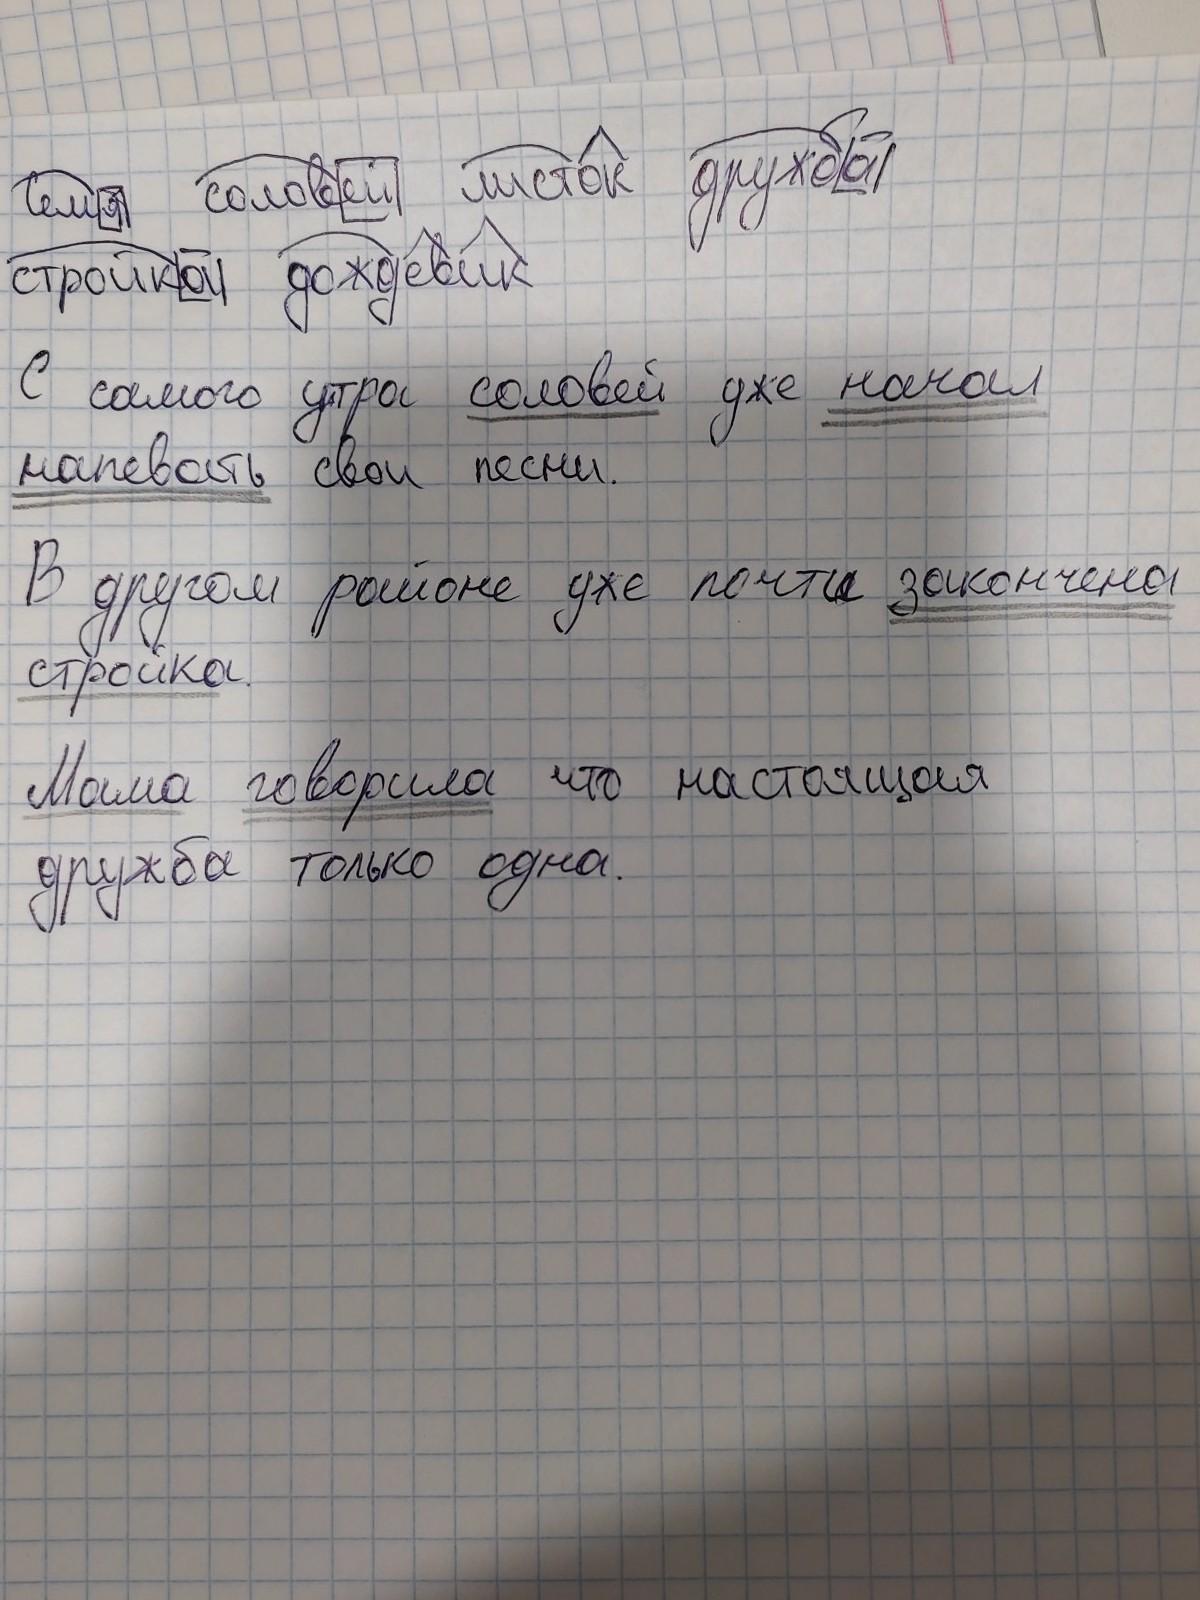 соловей листок дружба
стройка дождевик
С самого утра соловей уже начал
напевать свои песни.
В другом районе уже почти закончена
стройка.
Мама говорила что настоящая
дружба только одна.